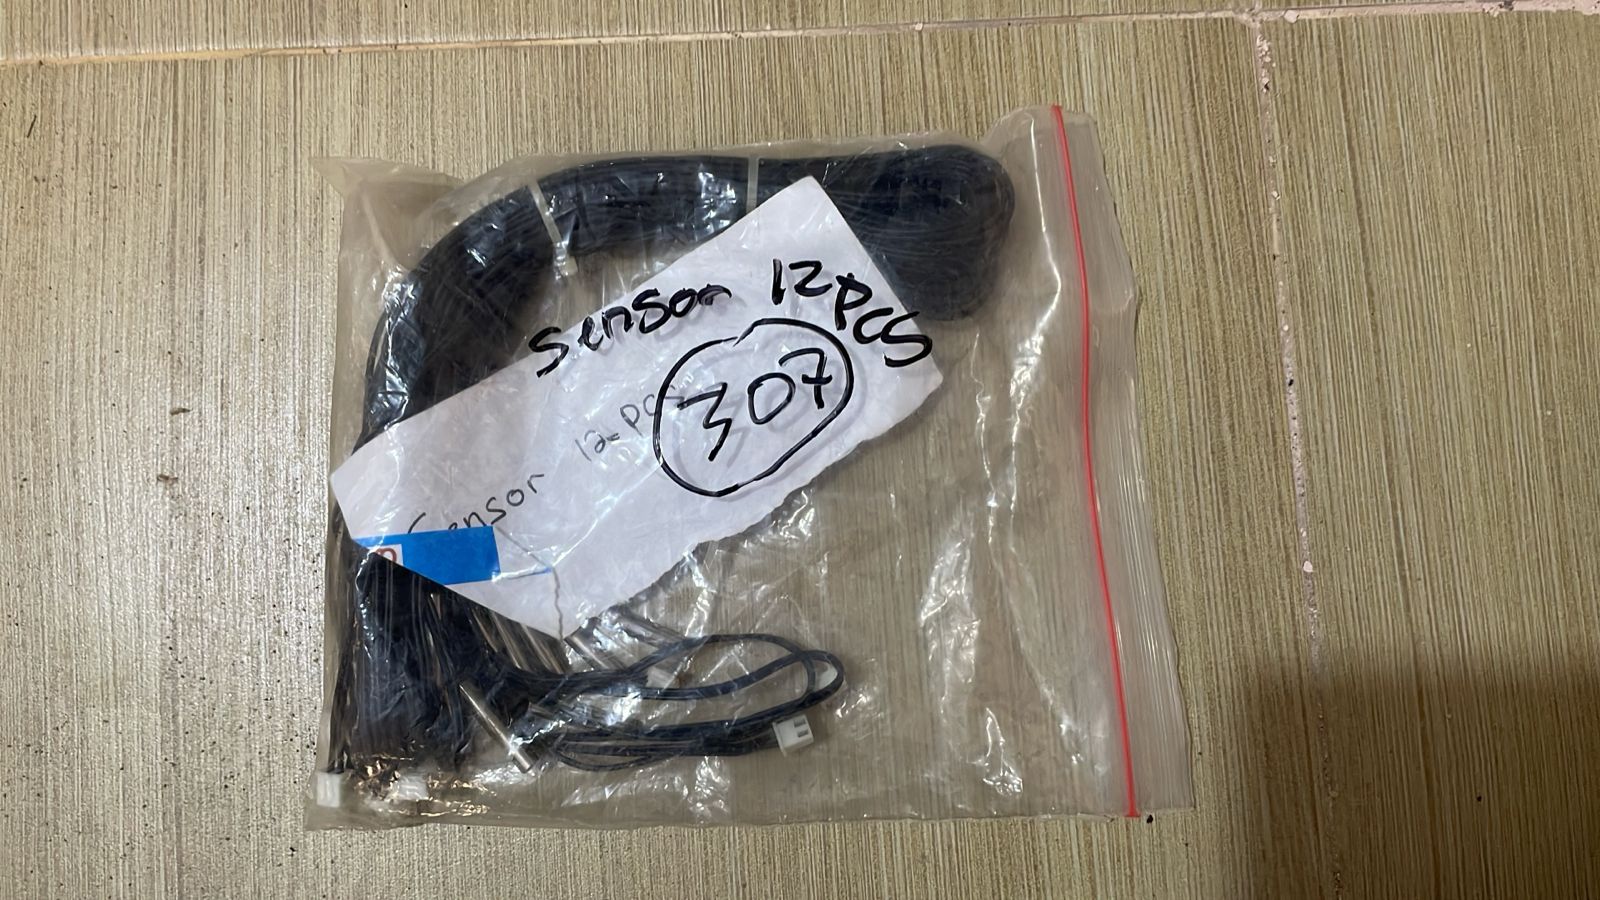 Sensor 12 PCS
307
Sensor 12 PCS